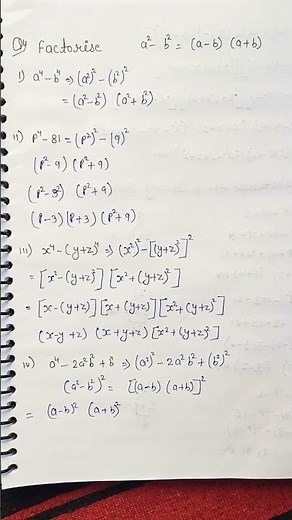 Q4 Factorise a² - b² = (a-b) (a+b)
i) a⁴-b⁴ ⇒ (a²)² - (b²)²
= (a²-b²) (a²+b²)
ii) P⁴-81 = (P²)² - (9)²
(P²-9) (P²+9)
(P²-3²) (P²+9)
(P-3) (P+3) (P²+9)
iii) x⁴-(y+z)⁴ ⇒ (x²)² - [(y+z)²]²
= [x²-(y+z)²] [x²+(y+z)²]
= [x-(y+z)] [x+(y+z)] [x²+(y+z)²]
(x-y+z) (x+y+z) [x²+(y+z)²]
iv) a⁴-2a²b²+b⁴ ⇒ (a²)²-2a²b²+(b²)²
(a²-b²)² = [(a-b) (a+b)]²
= (a-b)² (a+b)²